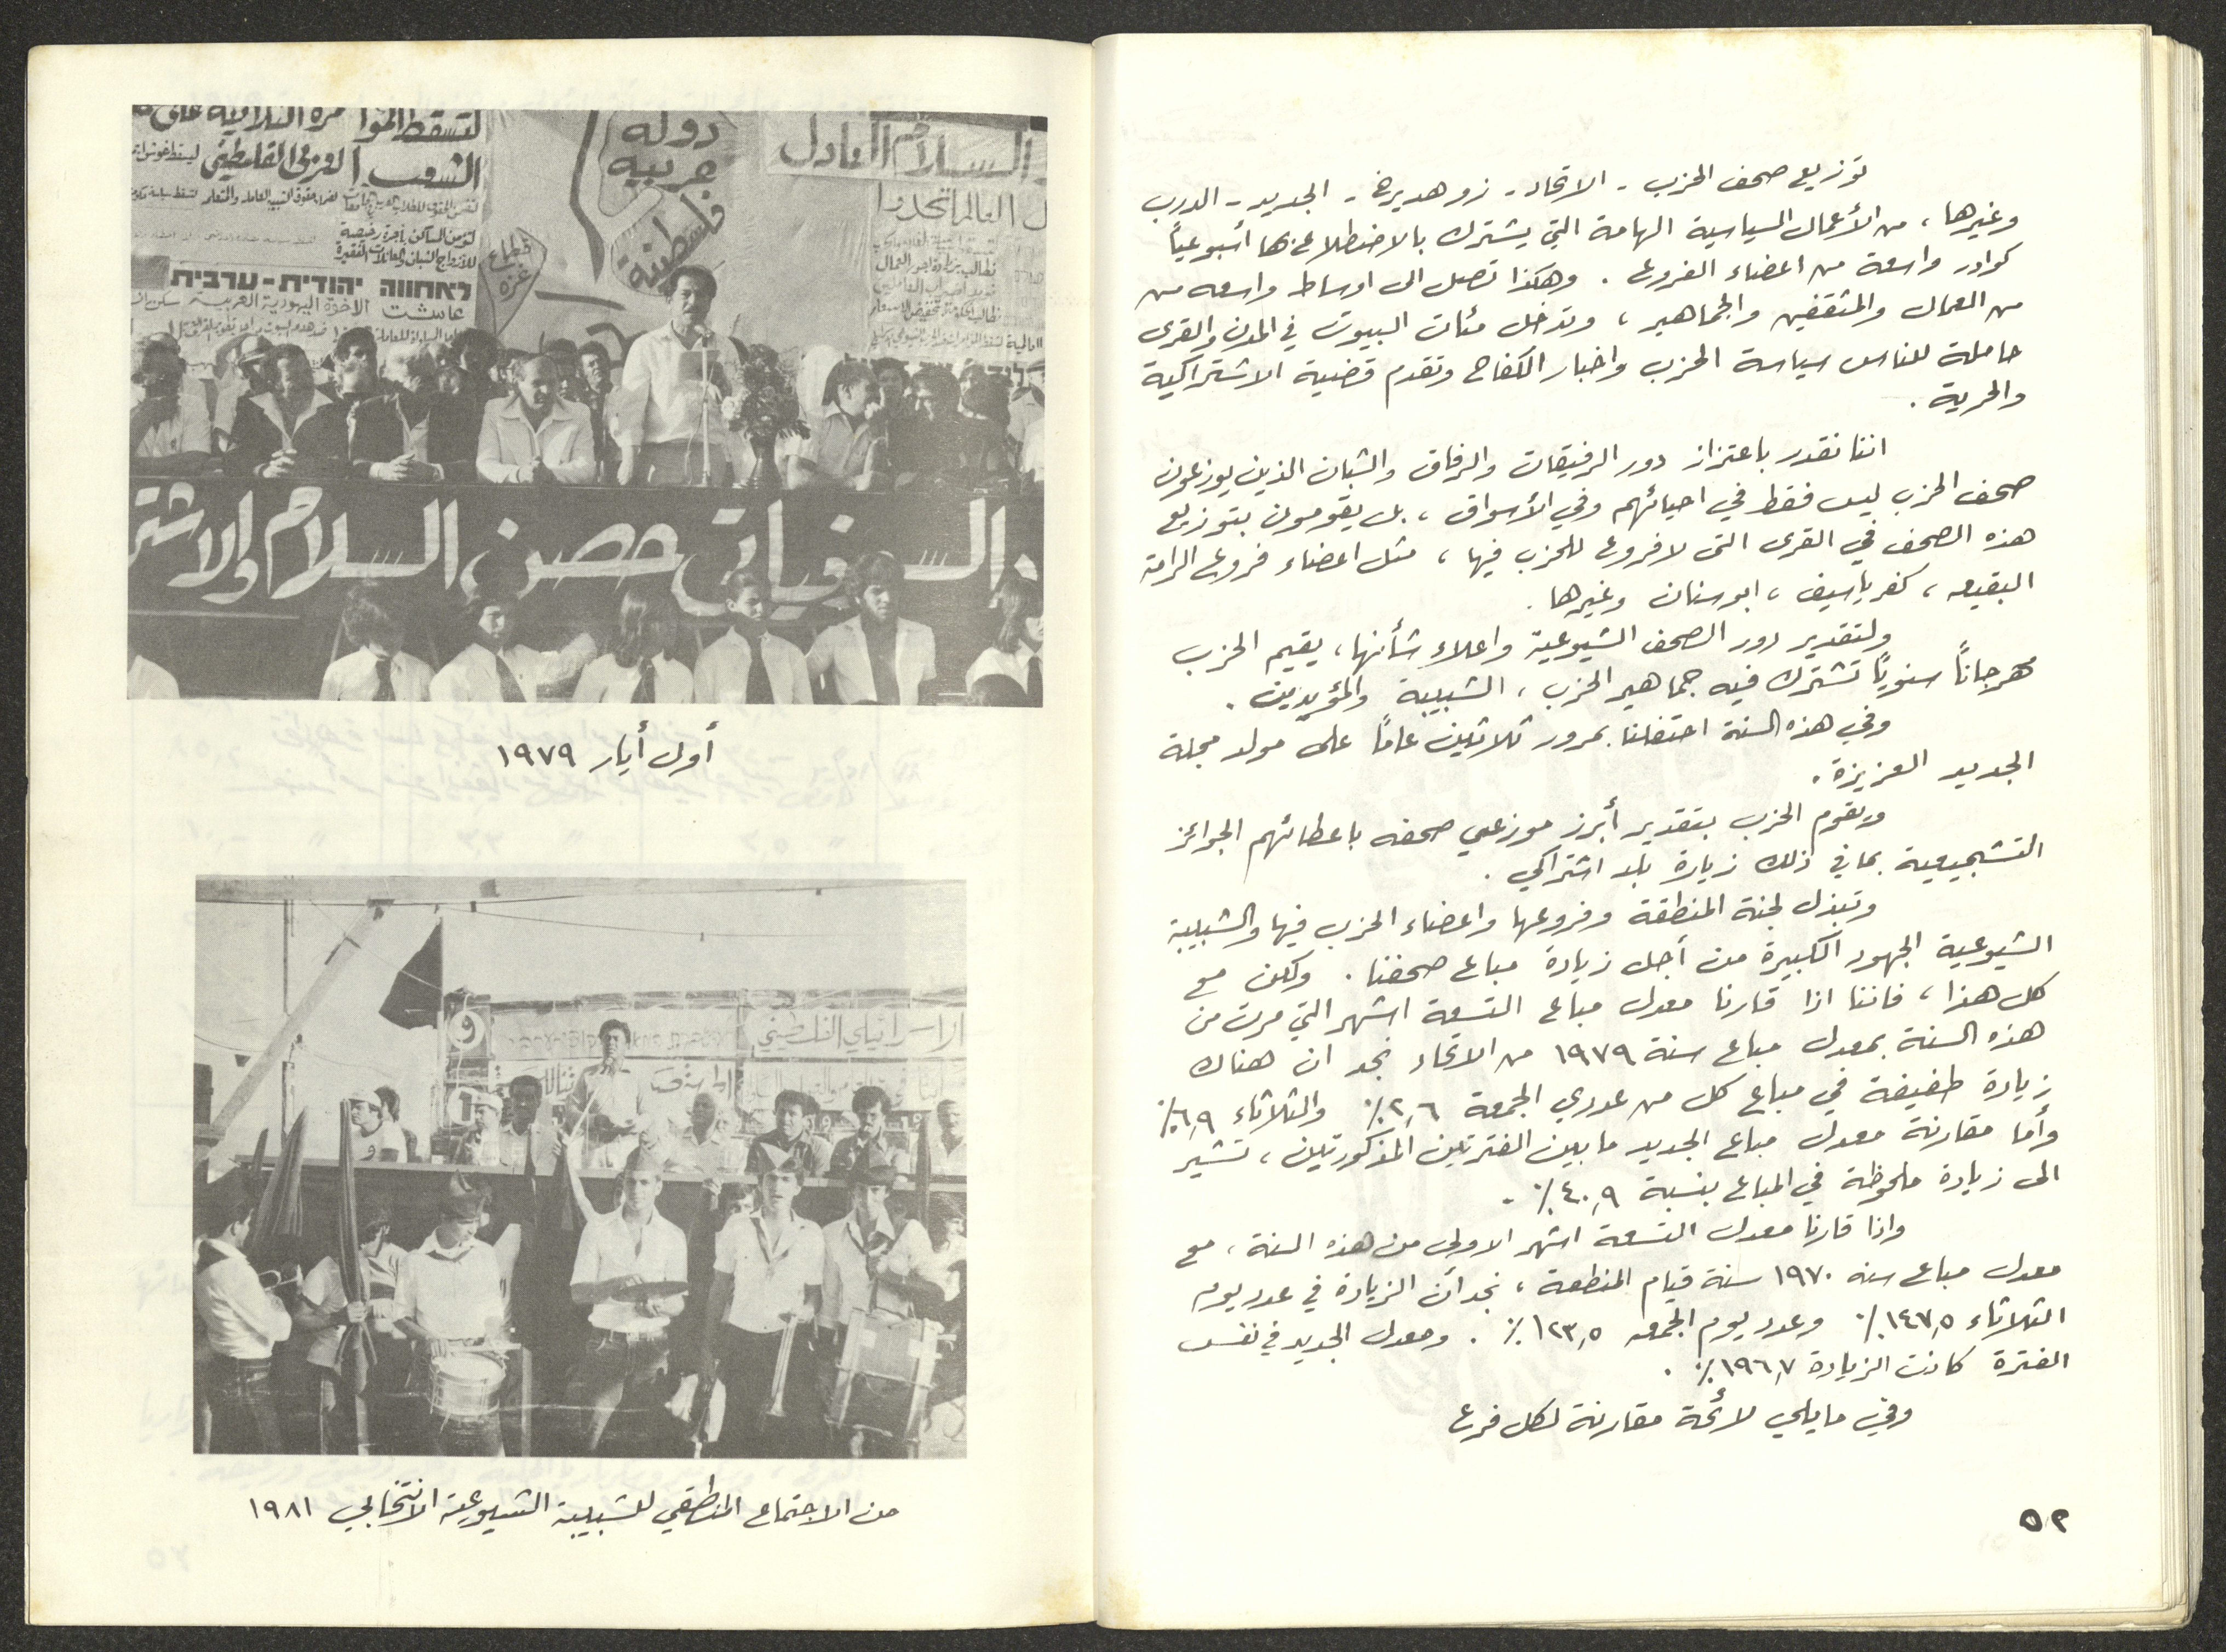 توزيع صحف الحزب - الاتحاد - زو هديرخ - الجديد - الدرب
وغيرها ، من الأعمال السياسية الهامة التي يشترك بالاضطلاع بها أسبوعياً
كوادر واسعة من اعضاء الفروع . وهكذا تصل الى اوساط واسعه من
من العمال والمثقفين والجماهير ، وتدخل مئات البيوت في المدن والقرى
حاملة للناس سياسة الحزب واخبار الكفاح وتقدم قضية الاشتراكية
والحرية .
اننا نقدر باعتزاز دور الرفيقات والرفاق والشبان الذين يوزعون
صحف الحزب ليس فقط في احيائهم وفي الأسواق ، بل يقومون بتوزيع
هذه الصحف في القرى التى لا فروع للحزب فيها ، مثل اعضاء فروع الرامة
البقيعه ، كفرياسيف ، ابوسنان وغيرها .
ولتقدير دور الصحف الشيوعية واعلاء شأنها ، يقيم الحزب
مهرجاناً سنوياً تشترك فيه جماهير الحزب ، الشبيبة والمؤيدين .
وفي هذه السنة احتفلنا بمرور ثلاثين عاماً على مولد مجلة
الجديد العزيزة .
ويقوم الحزب بتقدير أبرز موزعي صحفه باعطائهم الجوائز
التشجيعية بما في ذلك زيارة بلد اشتراكي .
وتبذل لجنة المنطقة وفروعها واعضاء الحزب فيها والشبيبة
الشيوعية الجهود الكبيرة من أجل زيادة مباع صحفنا . ولكن مع
كل هذا ، فاننا اذا قارنا معدل مباع التسعة اشهر التي مرت من
هذه السنة بمعدل مباع سنة ١٩٧٩ من الاتحاد نجد ان هناك
زيادة طفيفة في مباع كل من عددي الجمعة ٢,٦٪ والثلاثاء ٦,٩٪
وأما مقارنة معدل مباع الجديد ما بين الفترتين المذكورتين ، تشير
الى زيادة ملحوظة في المباع بنسبة ٤٠,٩٪ .
واذا قارنا معدل التسعة اشهر الاولى من هذه السنة ، مع
معدل مباع سنه ١٩٧٠ سنة قيام المنطقة ، نجد أن الزيادة في عدد يوم
الثلاثاء ١٤٧,٥٪ وعدد يوم الجمعه ١٢٣,٥٪ . ومعدل الجديد في نفس
الفترة كانت الزيادة ١٩٦,٧٪ .
وفي ما يلي لائحة مقارنة لكل فرع
٥٢
لتسقط المؤامرة الثلاثية على
الشعب العربي الفلسطيني
دولة
عربية
فلسطينية
قطاع
غزة
السلام العادل
ل العالم اتحدوا
نطالب بزيادة اجور العمال
لتؤمن المساكن بأجرة رخيصة
للأزواج الشبان والعائلات الفقيرة
לאחווה יהודית-ערבית
عاشت الاخوة اليهودية العربية
السوفياتي حصن السلام والاشتر
أول أيار ١٩٧٩
الاسرائيلي الفلسطيني
من الاجتماع المنطقي للشبيبة الشيوعية الانتخابي ١٩٨١